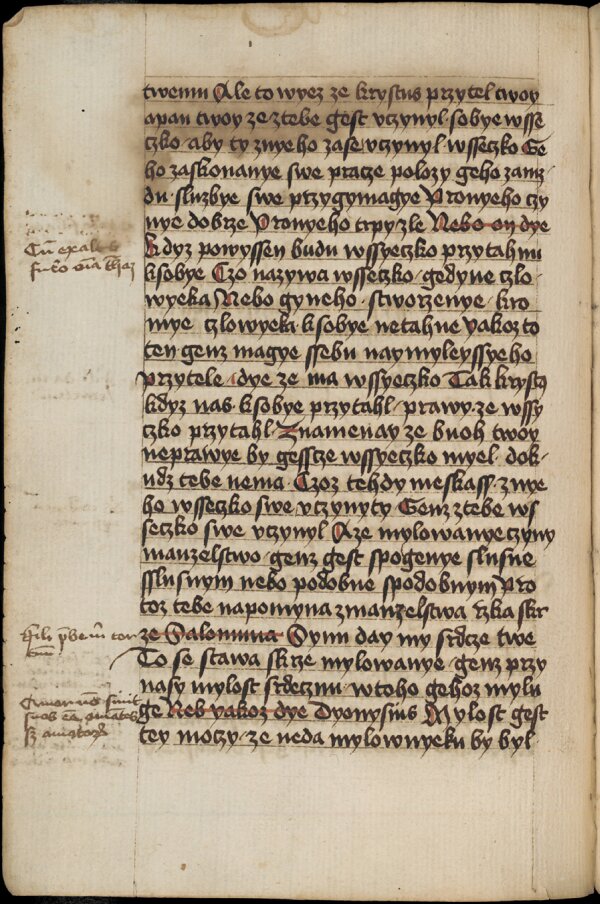 twemu Ale to wyez ze krystus przytel twoy
a pan twoy ze ztebe gest vczynyl sobye wsse
czko aby ty znyeho zase vczynyl wsseczko Ge
ho zaskonanye swe pracze polozy geho zamz
du sluzbye swe przygymagye Pronyeho czy
nye dobrze Pronyeho trpy zle Nebo on dye
Kdyz powyssen budu wssyeczko przytahnu
ksobye Czo nazywa wsseczko gedyne czlo
wyeka Nebo gyneho stworzenye kro
mye czlowyeka ksobye netahne yakoz to
ten genz magye ssebu naymyleyssyeho
przytele dye ze ma wssyeczko Tak krystus
kdyz nas ksobye przytahl prawy ze wssy
czko przytahl Znamenay ze buoh twoy
neprawye by gesscze wssyeczko myel dok
udz tebe nema Czoz tehdy meskass znye
ho wsseczko swe vczynyty Genz ztebe ws
seczko swe vczynyl A ze mylowanye czyny
manzelstwo genz gest spogenye slusne
sslusnym nebo podobne spodobnym Pro
toz tebe napomyna zmanzelstwa rzka skr
ze Salomuna Synu day my srdcze twe
To se stawa skrze mylowanye genz przy
nasy mylost srdecznu wtoho gehoz mylu
ge Neb yakoz dye Dyonysius Mylost gest
tey moczy ze neda mylownyeku by byl
Cum exalt
fuero omia
Fili prebe m cor
tuum
sinit
suos amatores
amator